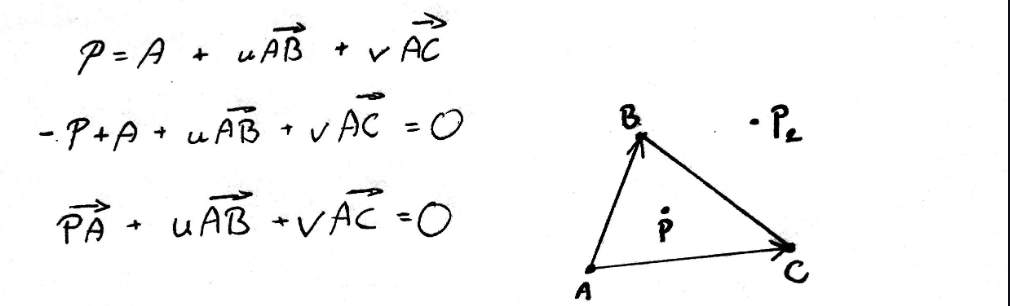 P = A + uAB⃗ + vAC⃗
-P + A + uAB⃗ + vAC⃗ = 0
PA⃗ + uAB⃗ + vAC⃗ = 0
B
P₂
P
A
C